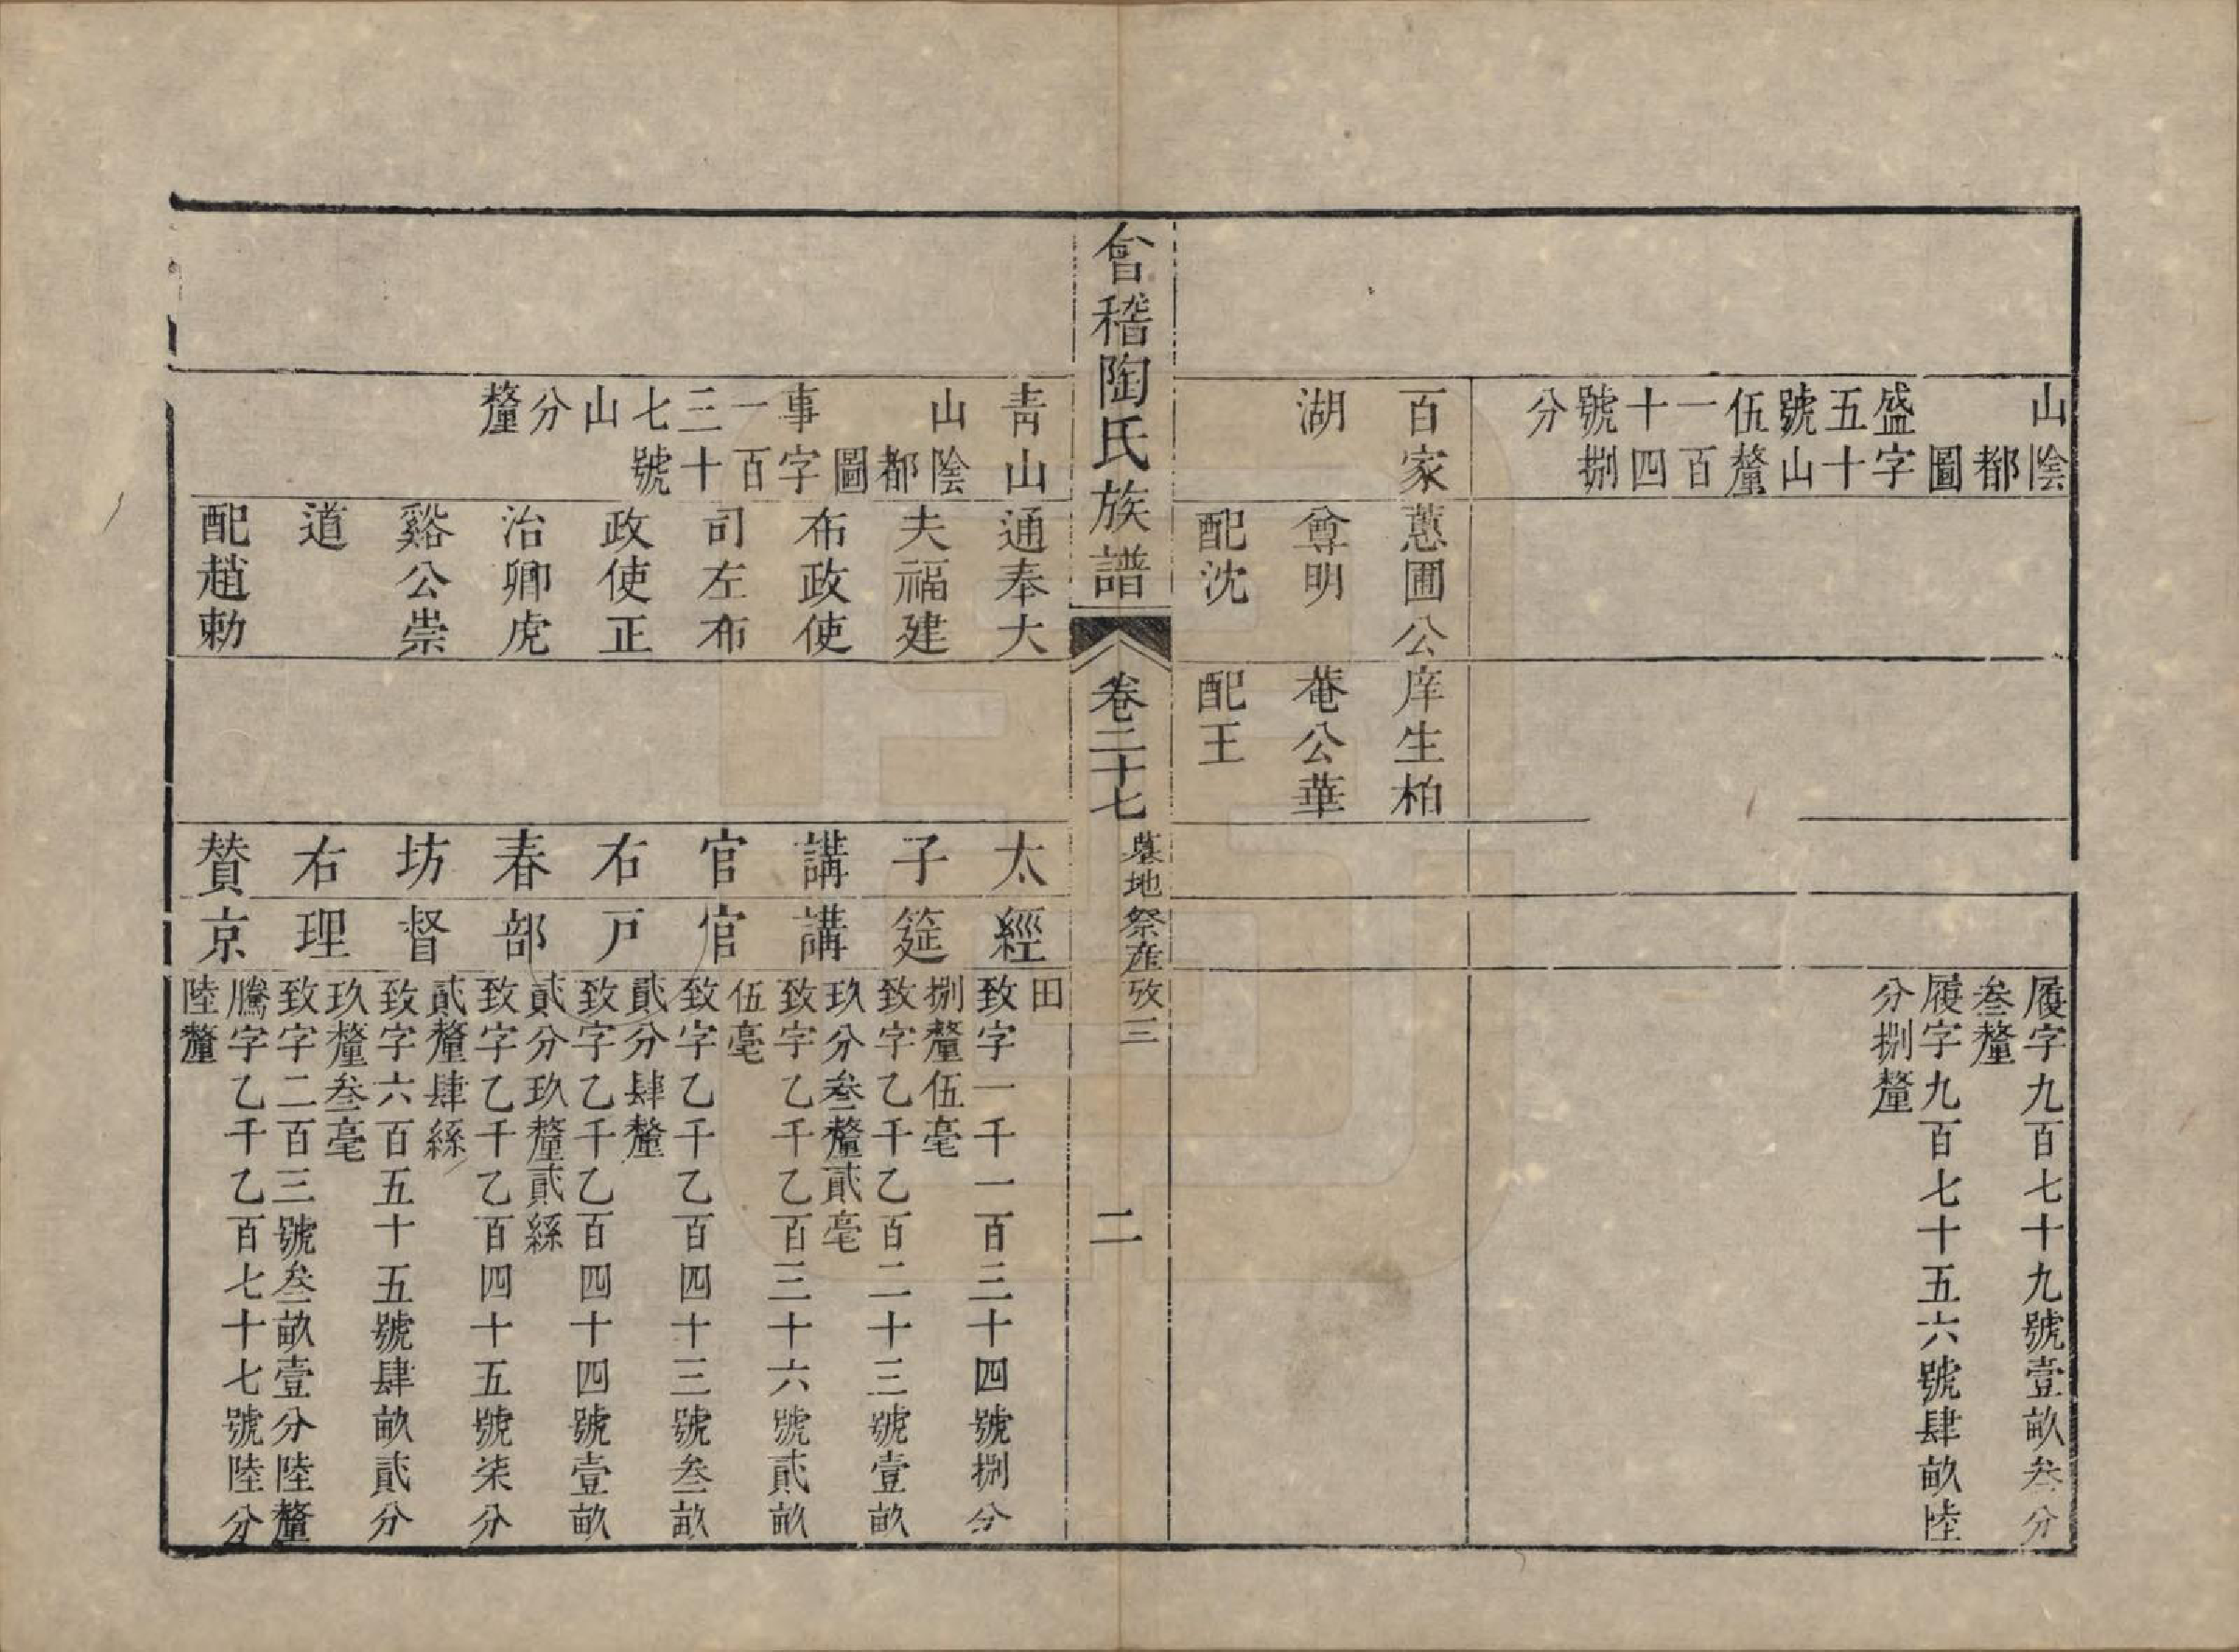 山陰
都
圖
盛字
五十
號山
伍釐
一百
十四
號捌
分
履字九百七十九號壹畝叁分
叁釐
履字九百七十五六號肆畝陸
分捌釐
百家
湖
蕙圃公
尊明
配沈
庠生柏
菴公華
配王
會稽陶氏族譜
卷二十七
墓地祭產攷三
二
青山
山陰
都
圖
事字
一百
三十
七號
山
分
釐
通奉大
夫福建
布政使
司左布
政使正
治卿虎
谿公崇
道
配趙勅
太子講官右春坊右贊
經筵講官戶部督理京
田
致字一千一百三十四號捌分
捌釐伍毫
致字乙千乙百二十三號壹畝
玖分叁釐貳毫
致字乙千乙百三十六號貳畝
伍毫
致字乙千乙百四十三號叁畝
貳分肆釐
致字乙千乙百四十四號壹畝
貳分玖釐貳絲
致字乙千乙百四十五號柒分
貳釐肆絲
致字六百五十五號肆畝貳分
玖釐叁毫
致字二百三號叁畝壹分陸釐
騰字乙千乙百七十七號陸分
陸釐